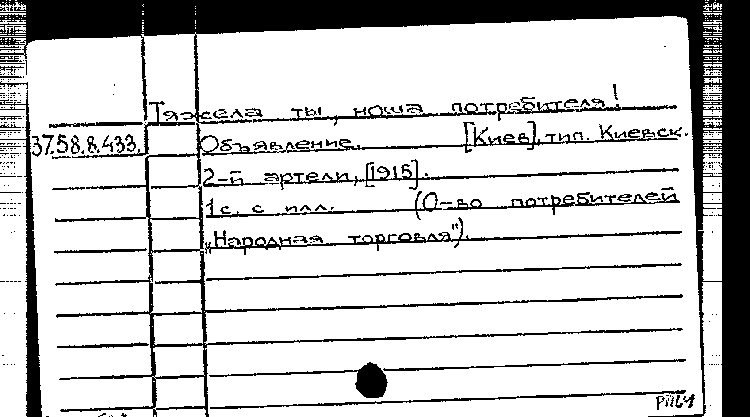 Тяжела ты, ноша потребителя!
37.58.8.433. Объявление. [Киев], тип. Киевск.
2-й артели, [1915].
1 с. с илл. (О-во потребителей
„Народная торговля").